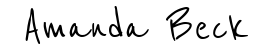 Amanda Beck